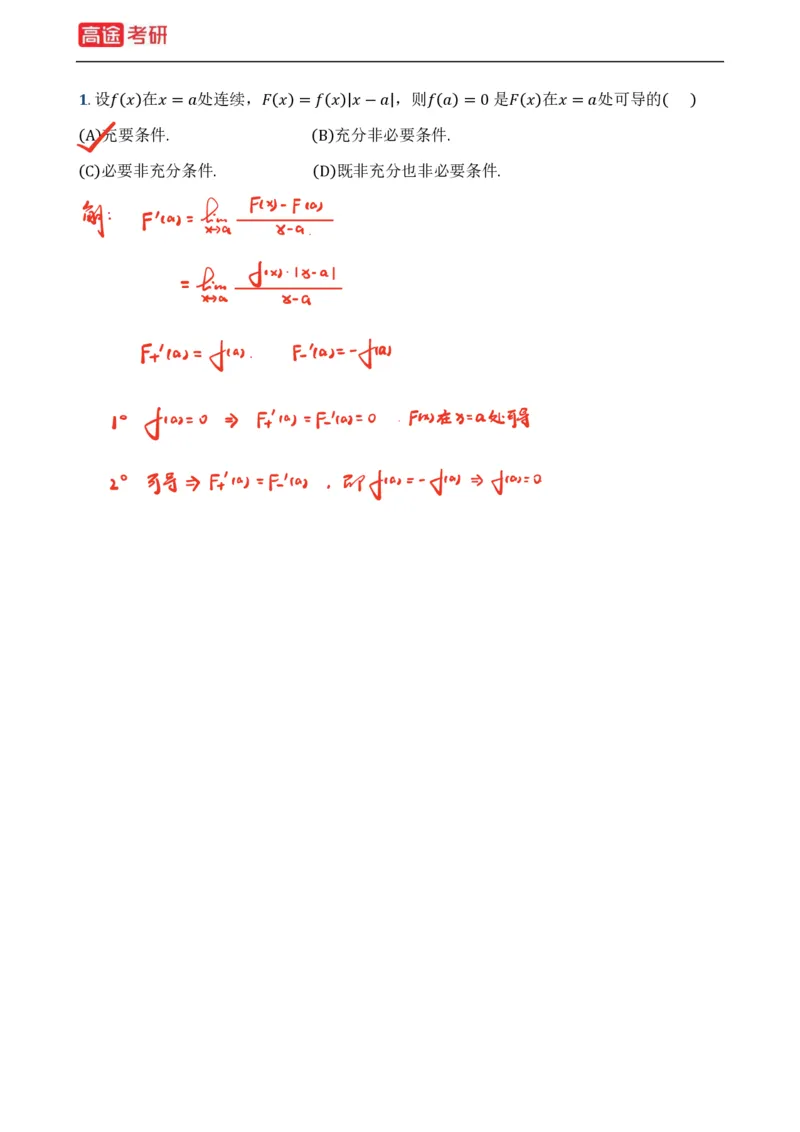 高途 考研
1. 设f(x)在x = a处连续，F(x) = f(x)|x − a|，则f(a) = 0 是F(x)在x = a处可导的( )
(A)充要条件. (B)充分非必要条件.
(C)必要非充分条件. (D)既非充分也非必要条件.
解: F'(a) = lim x→a (F(x) - F(a))/(x-a).
= lim x→a (f(x)·|x-a|)/(x-a)
F₊'(a) = f(a). F₋'(a) = -f(a)
1° f(a)=0 ⇒ F₊'(a) = F₋'(a) = 0 . F(x)在x=a处可导
2° 可导 ⇒ F₊'(a) = F₋'(a) , 即 f(a) = -f(a) ⇒ f(a)=0